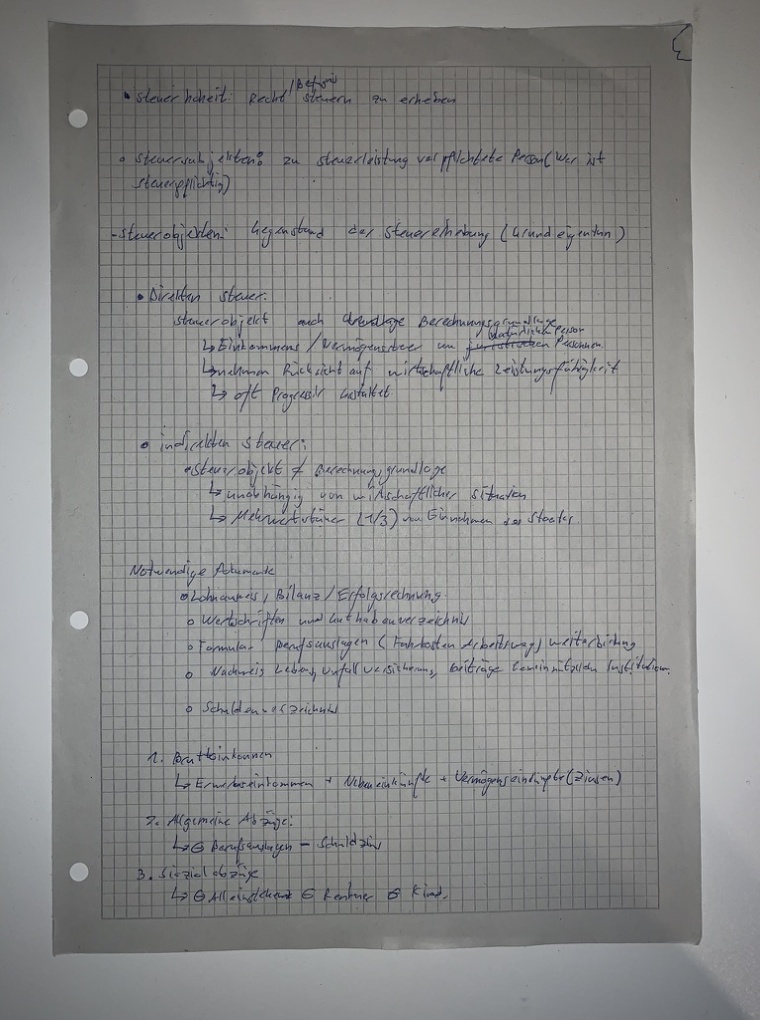 /Befugnis
• Steuerhoheit: Recht Steuern zu erheben
• Steuersubjekten: zu Steuerleistung verpflichtete Person (Wer ist
steuerpflichtig)
- Steuerobjekten: Gegenstand der Steuererhebung (Grundeigentum)
• Direkten Steuer:
Steuerobjekt auch Grundlage Berechnungsgrundlage
natürlichen Person
↳ Einkommens / Vermögenssteuer von juristischen Personnen
↳ nehmen Rücksicht auf wirtschaftliche Leistungsfähigkeit
↳ oft Progressiv gestaltet.
• indirekten Steuer:
• Steuerobjekt ≠ Berechnungsgrundlage
↳ unabhängig von wirtschaftlicher Situation
↳ Mehrwertsteuer (1/3) von Einnahmen des Staates.
Notwendige Dokumente
o Lohnausweis, Bilanz / Erfolgsrechnung
o Wertschriften und Guthabenverzeichnis
o Formular Berufsauslagen (Fahrkosten Arbeitsweg) Weiterbildung
o Nachweis Lebens, Unfallversicherung, Beiträge Gemeinnützigen Institution.
o Schuldenverzeichnis
1. Bruttoeinkommen
↳ Erwerbseinkommen + Nebeneinkünfte + Vermögenseinkünfte (Zinsen)
2. Allgemeine Abzüge:
↳ ⊖ Berufsauslagen – Schuldzins
3. Sozialabzüge
↳ ⊖ Alleinstehend ⊖ Rentner ⊖ Kind.